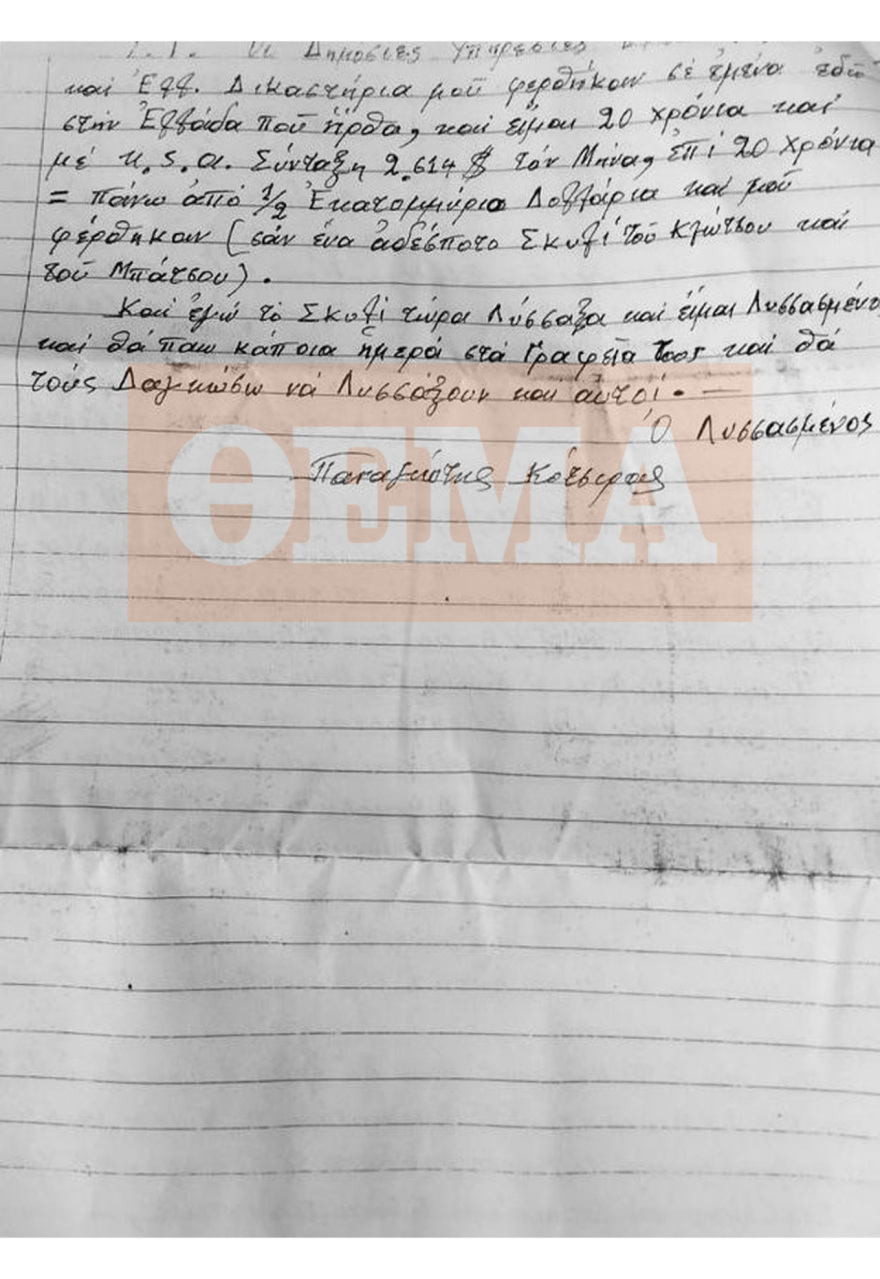 Οι Δημόσιες Υπηρεσίες
και Ἑλλ. Δικαστήρια μοῦ φερθήκαν σέ ἐμένα ἐδῶ
στήν Ἑλλάδα ποῦ ἦρθα, καί εἶμαι 20 χρόνια καί
μέ U.S.A. Σύνταξη 2.614 $ τόν Μήνα, ἐπί 20 Χρόνια
= πάνω ἀπό 1/2 Ἑκατομμύριο Δολλάρια καί μοῦ
φέρθηκαν (σάν ἕνα ἀδέσποτο Σκυλί τοῦ Κλώτσου καί
τοῦ Μπάτσου).
Καί ἐγώ τό Σκυλί τώρα Λύσσαξα καί εἶμαι Λυσσασμένο
καί θά πάω κάποια ἡμέρα στά Γραφεῖα τους καί θά
τούς Δαγκώσω νά Λυσσάξουν καί αὐτοί. —
Ὁ Λυσσασμένος
Παναγιώτης Κότσιφας
ΘΕΜΑ